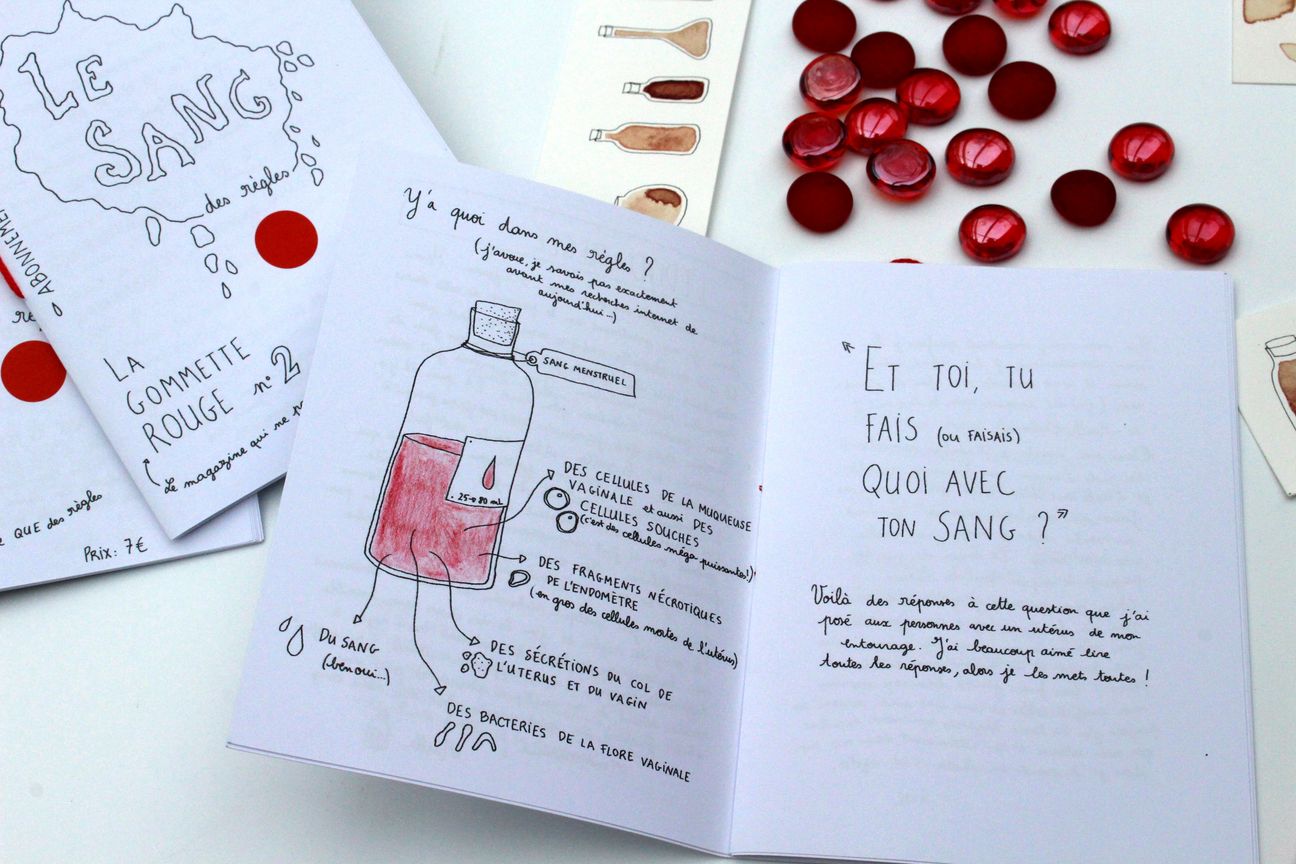 LE
SANG
des règles
ABONNEMEN
LA
GOMMETTE
ROUGE n° 2
Le magazine qui ne p
QUE des règles
Prix: 7€
Y'a quoi dans mes règles ?
(j'avoue, je savais pas exactement
avant mes recherches internet de
aujourd'hui...)
SANG MENSTRUEL
25 → 80 mL
DES CELLULES DE LA MUQUEUSE
VAGINALE et aussi DES
CELLULES SOUCHES
(c'est des cellules méga puissantes!)
DES FRAGMENTS NÉCROTIQUES
DE L'ENDOMÈTRE
(en gros des cellules mortes de l'utérus)
DU SANG
(ben oui...)
DES SÉCRÉTIONS DU COL DE
L'UTERUS ET DU VAGIN
DES BACTERIES DE LA FLORE VAGINALE
"ET TOI, TU
FAIS (OU FAISAIS)
QUOI AVEC
TON SANG ?"
Voilà des réponses à cette question que j'ai
posé aux personnes avec un utérus de mon
entourage. J'ai beaucoup aimé lire
toutes les réponses, alors je les mets toutes !